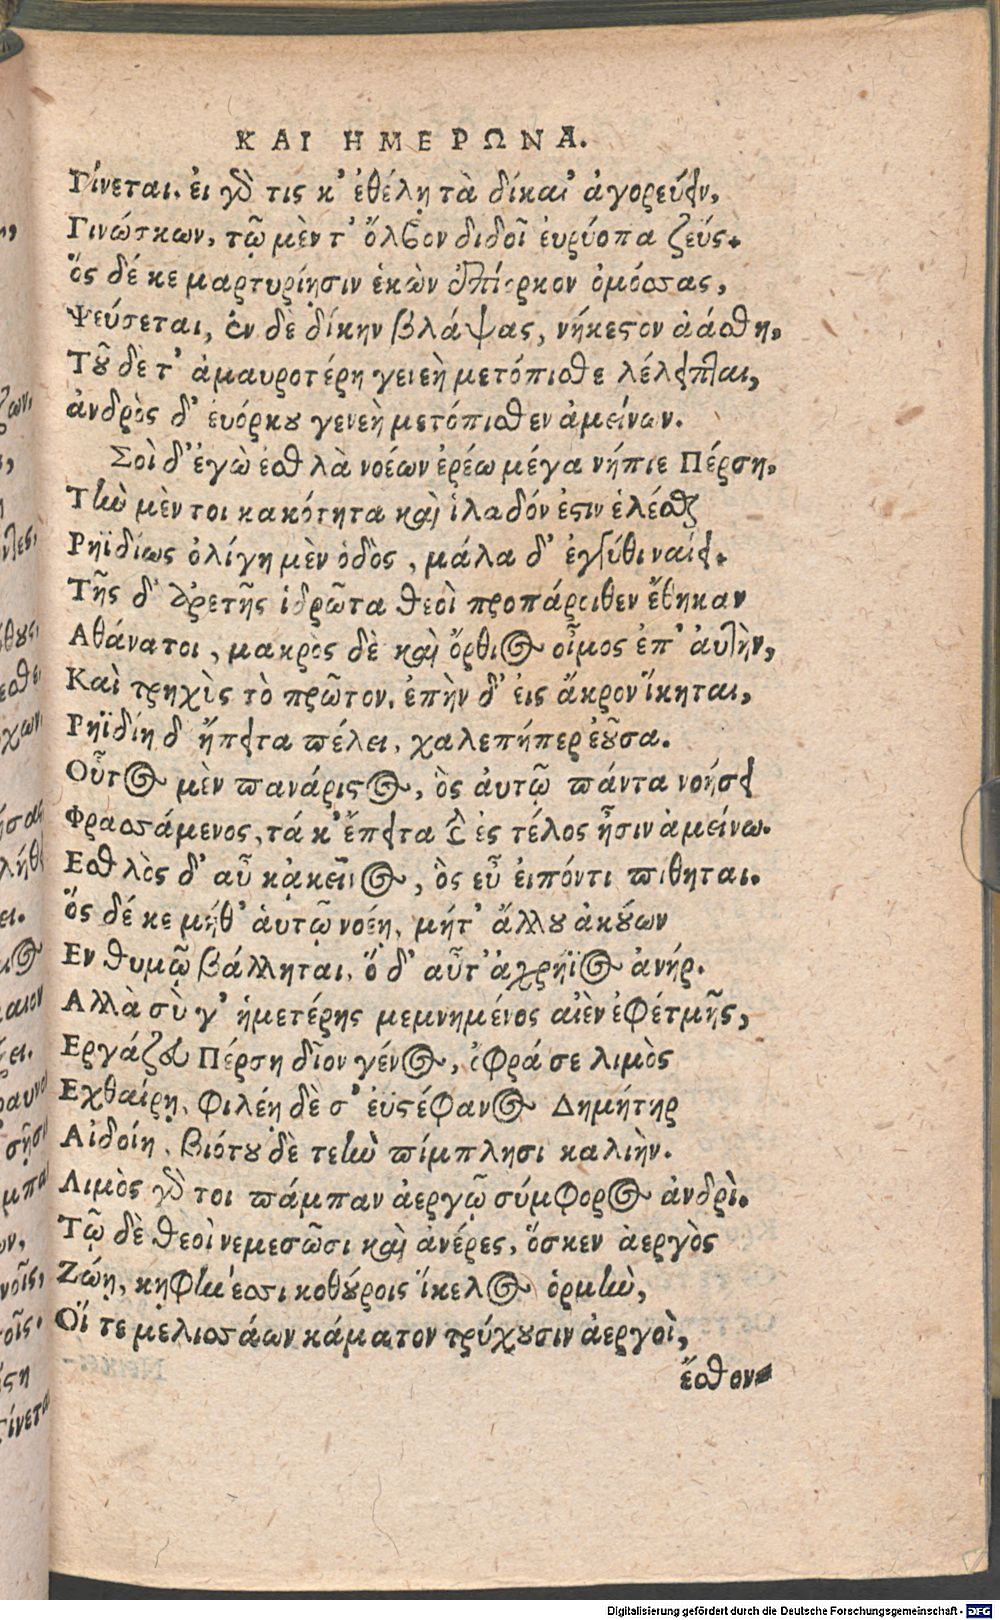 ΚΑΙ ΗΜΕΡΩΝ Α.
Γίνεται. ἐι γὸ τις κ' ἐθέλῃ τὰ δίκαι' ἀγορεύειν,
Γινώσκων, τῷ μὲν τ' ὄλβον διδοῖ ἐυρύοπα ζεύς.
ὅς δέ κε μαρτυρίῃσιν ἑκὼν ἐπίορκον ὀμόσσας,
Ψεύσεται, ἐν δὲ δίκην βλάψας, νήκεστον ἀάσθη,
Τοῦ δὲ τ' ἀμαυροτέρη γειεὴ μετόπισθε λέλειπται,
ἀνδρὸς δ' ἐυόρκου γενεὴ μετόπισθεν ἀμείνων.
Σοὶ δ' ἐγὼ ἐσθλὰ νοέων ἐρέω μέγα νήπιε Πέρση,
Τὴν μὲν τοι κακότητα καὶ ἰλαδόν ἐστιν ἑλέσθαι
Ρηϊδίως ὀλίγη μὲν ὁδὸς, μάλα δ' ἐγγύθι ναίει.
Τῆς δ' ἀρετῆς ἱδρῶτα θεοὶ προπάροιθεν ἔθηκαν
Αθάνατοι, μακρὸς δὲ καὶ ὄρθιος οἶμος ἐπ' ἀυτὴν,
Καὶ τρηχὺς τὸ πρῶτον. ἐπὴν δ' ἐις ἄκρον ἵκηται,
Ρηϊδίη δ ἤπειτα πέλει, χαλεπήπερ ἐοῦσα.
Οὗτος μὲν πανάριστος, ὃς ἀυτῷ πάντα νοήσει
Φρασσάμενος, τά κ' ἔπειτα καὶ ἐς τέλος ᾖσιν ἀμείνω.
Εσθλὸς δ' αὖ κἀκεῖνος, ὃς εὖ ἐιπόντι πιθηται.
ὅς δέ κε μήθ' ἀυτῷ νοέῃ, μήτ' ἄλλου ἀκούων
Εν θυμῷ βάλληται, ὅ δ' αὖτ' ἀχρήϊος ἀνήρ.
Αλλὰ σὺ γ' ἡμετέρης μεμνημένος αἰὲν ἐφέτμῆς,
Εργάζευ Πέρση δῖον γένος, ὄφρά σε λιμὸς
Εχθαίρῃ, φιλέῃ δὲ σ' ἐϋστέφανος Δημήτηρ
Αἰδοίη, βιότου δὲ τεὴν πίμπλησι καλιὴν.
Λιμὸς γὸ τοι πάμπαν ἀεργῷ σύμφορος ἀνδρὶ.
Τῷ δὲ θεοὶ νεμεσῶσι καὶ ἀνέρες, ὅσκεν ἀεργὸς
Ζώῃ, κηφήνεσσι κοθούροις ἴκελος ὁρμὴν,
Οἵ τε μελισσάων κάματον τρύχουσιν ἀεργοὶ,
ἔσθον
Digitalisierung gefördert durch die Deutsche Forschungsgemeinschaft - DFG